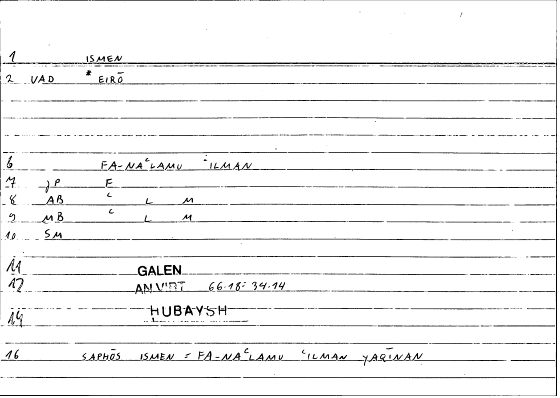 1 ISMEN
2 VAD * EIRŌ
6 FA-NAʿLAMU ʿILMAN
7 JP F
8 AB ʿ L M
9 MB ʿ L M
10 SM
11 GALEN
12 AN VIRT 66.18 = 34.14
14 HUBAYSH
16 SAPHŌS ISMEN = FA-NAʿLAMU ʿILMAN YAQĪNAN